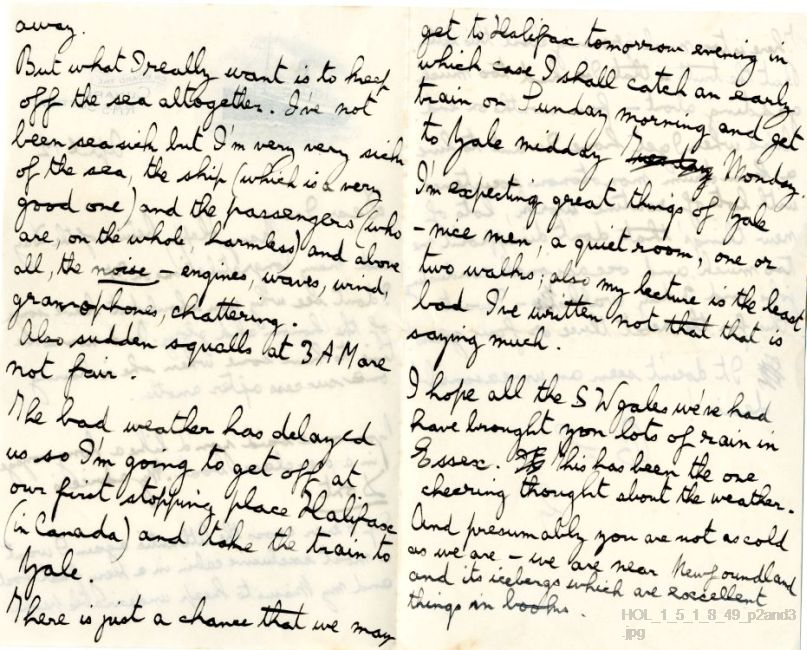 away.
But what I really want is to keep
off the sea altogether. I've not
been seasick but I'm very very sick
of the sea, the ship (which is a very
good one) and the passengers (who
are, on the whole, harmless) and above
all, the noise – engines, waves, wind,
gramophones, chattering.
Also sudden squalls at 3 AM are
not fair.
The bad weather has delayed
us so I'm going to get off at
our first stopping place Halifax
(in Canada) and take the train to
Yale.
There is just a chance that we may
get to Halifax tomorrow evening in
which case I shall catch an early
train on Sunday morning and get
to Yale midday Tuesday Monday.
I'm expecting great things of Yale
– nice men, a quiet room, one or
two walks; also my lecture is the least
bad I've written not that that is
saying much.
I hope all the SW gales we've had
have brought you lots of rain in
Essex. This has been the one
cheering thought about the weather.
And presumably you are not as cold
as we are – we are near Newfoundland
and its icebergs which are excellent
things in books.
HOL_1_5_1_8_49_p2and3
.jpg